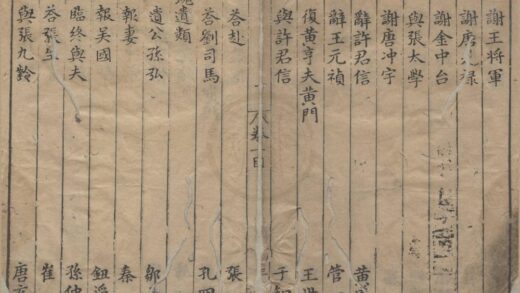 謝王將軍
謝唐祿
謝金中台
與張太學
謝唐冲宇
辭許君信 黄
辭王元禎 管
復黃亨夫黄門 王世
與許君信 于
卷一目
答赴 張
答劉司馬 孔四
遺類
遺公孫弘 鄒
報妻 秦
報吳國 鈕滔
臨終與夫 孫仲
答張生 崔
與張九齡 唐玄